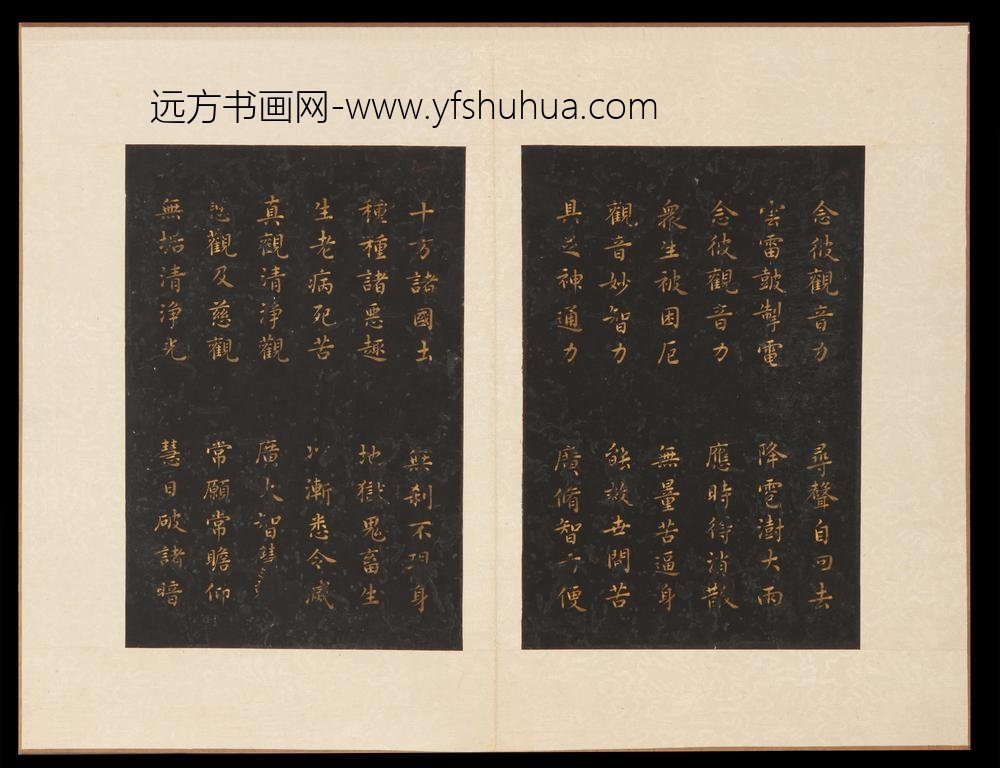 远方书画网-www.yfshuhua.com
念彼觀音力 尋聲自回去
雲雷皷掣電 降雹澍大雨
念彼觀音力 應時得消散
衆生被困厄 無量苦逼身
觀音妙智力 能救世間苦
具足神通力 廣脩智方便
十方諸國土 無剎不現身
種種諸惡趣 地獄鬼畜生
生老病死苦 以漸悉令滅
真觀清淨觀 廣大智慧觀
悲觀及慈觀 常願常瞻仰
無垢清淨光 慧日破諸暗